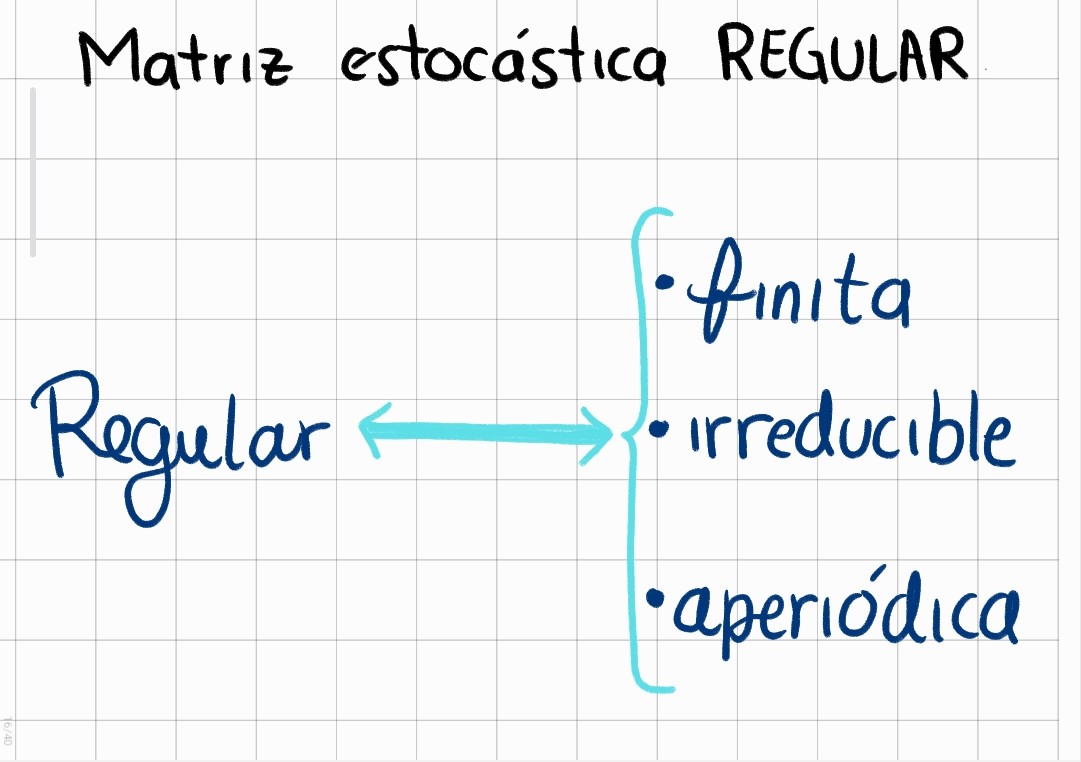 Matriz estocástica REGULAR
• finita
Regular
• irreducible
• aperiódica
16/40